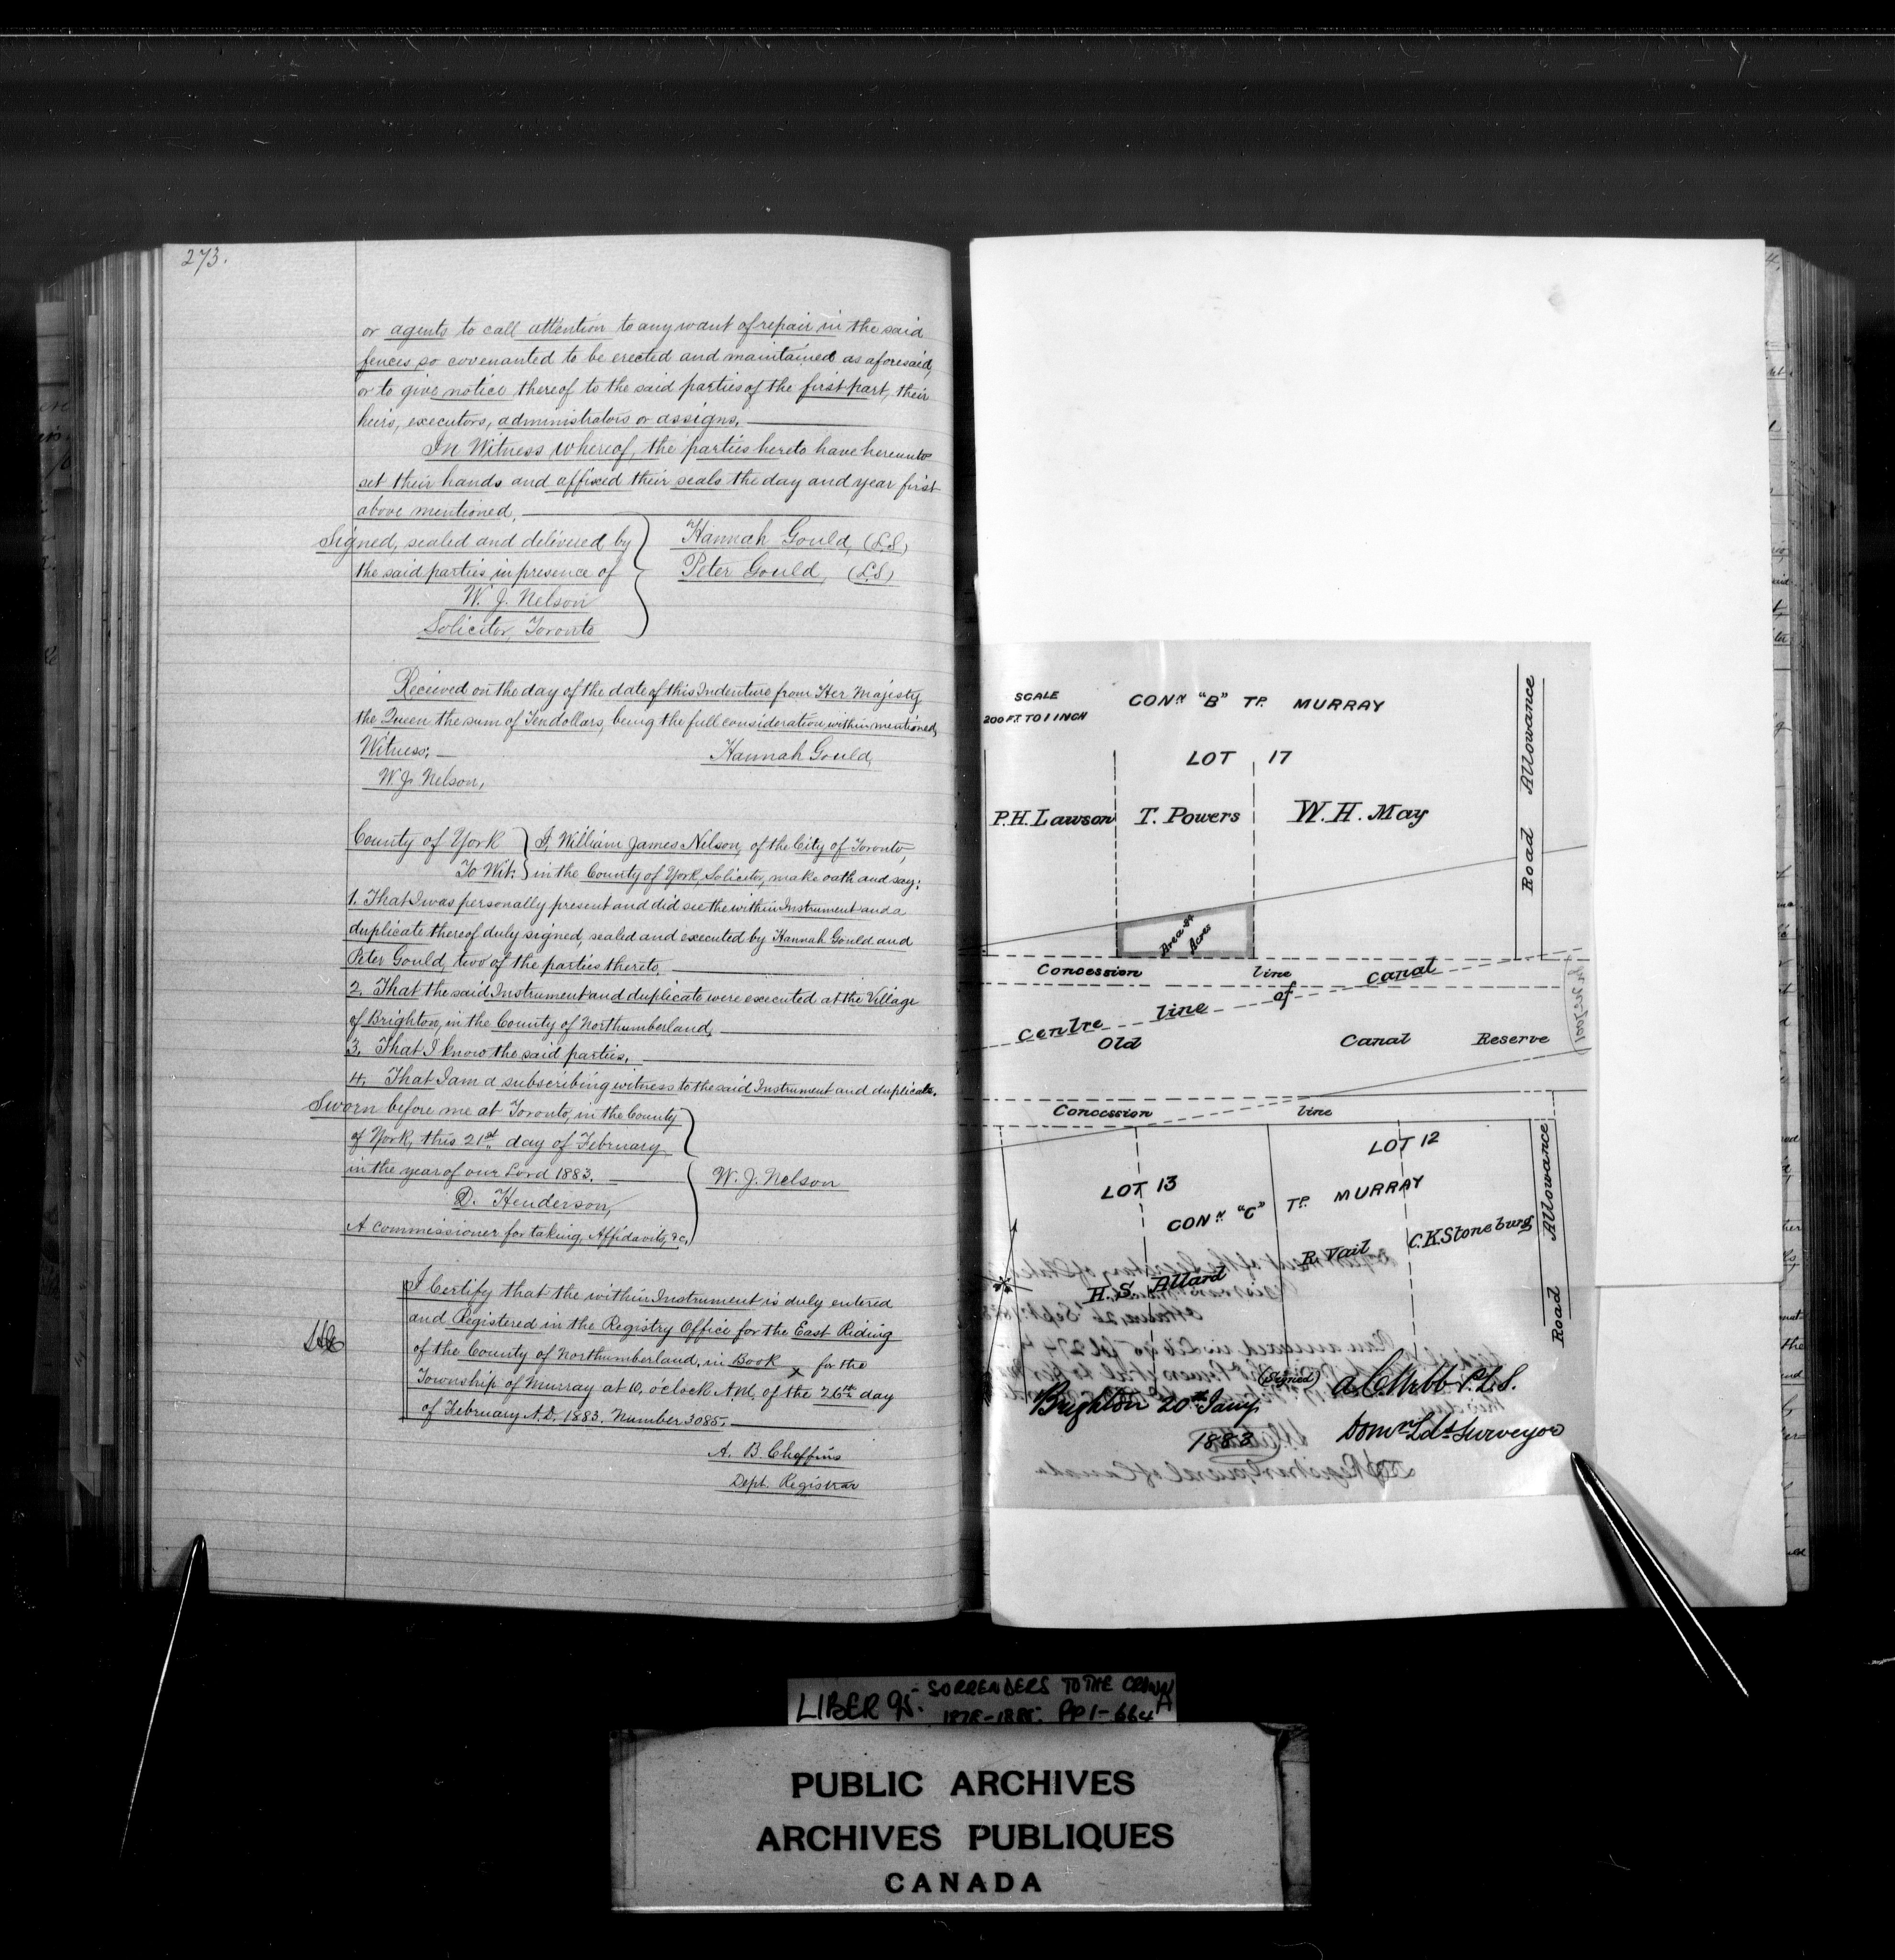 273.
or agents to call attention to any want of repair in the said
fences so covenanted to be erected and maintained as aforesaid,
or to give notice thereof to the said parties of the first part, their
heirs, executors, administrators or assigns.
In Witness whereof, the parties hereto have hereunto
set their hands and affixed their seals the day and year first
above mentioned.
Signed, sealed and delivered by
the said parties in presence of
W. J. Nelson
Solicitor, Toronto
Hannah Gould, (L.S)
Peter Gould, (L.S)
Recieved on the day of the date of this Indenture from Her Majesty
the Queen the sum of Ten dollars, being the full consideration within mentioned,
Witness:
Hannah Gould,
W. J. Nelson,
County of York
To Wit:
I, William James Nelson, of the City of Toronto,
in the County of York, Solicitor, make oath and say:
1. That I was personally present and did see the within Instrument and a
duplicate thereof duly signed, sealed and executed by Hannah Gould and
Peter Gould, two of the parties thereto.
2. That the said Instrument and duplicate were executed at the Village
of Brighton, in the County of Northumberland,
3. That I know the said parties,
4. That I am a subscribing witness to the said Instrument and duplicate.
Sworn before me at Toronto, in the County
of York, this 21st day of February
in the year of our Lord 1883.
W. J. Nelson
D. Henderson,
A commissioner for taking Affidavits, &c,
I Certify that the within Instrument is duly entered
and Registered in the Registry Office for the East Riding
of the County of Northumberland, in Book x for the
Township of Murray at 10. o'clock A.M. of the 26th day
of February A.D. 1883. Number 3085.
A. B. Cheffins
Dept. Registrar
SCALE
200 FT. TO 1 INCH
CONN "B" TP. MURRAY
Road Allowance
LOT 17
P.H. Lawson T. Powers W.H. May
Area
Acres
Concession line
Centre line of Canal
Old Canal Reserve
Concession line
LOT 12
LOT 13
CONN "C" TP. MURRAY
Road Allowance
H. S. Allard R. Vail C.K. Stoneburg
(Signed) A C Webb P.L.S.
Brighton 20th Jany
1883
Domn Lds Surveyor
LIBER 95: SURRENDERS TO THE CROWN
PP 1-664
PUBLIC ARCHIVES
ARCHIVES PUBLIQUES
CANADA